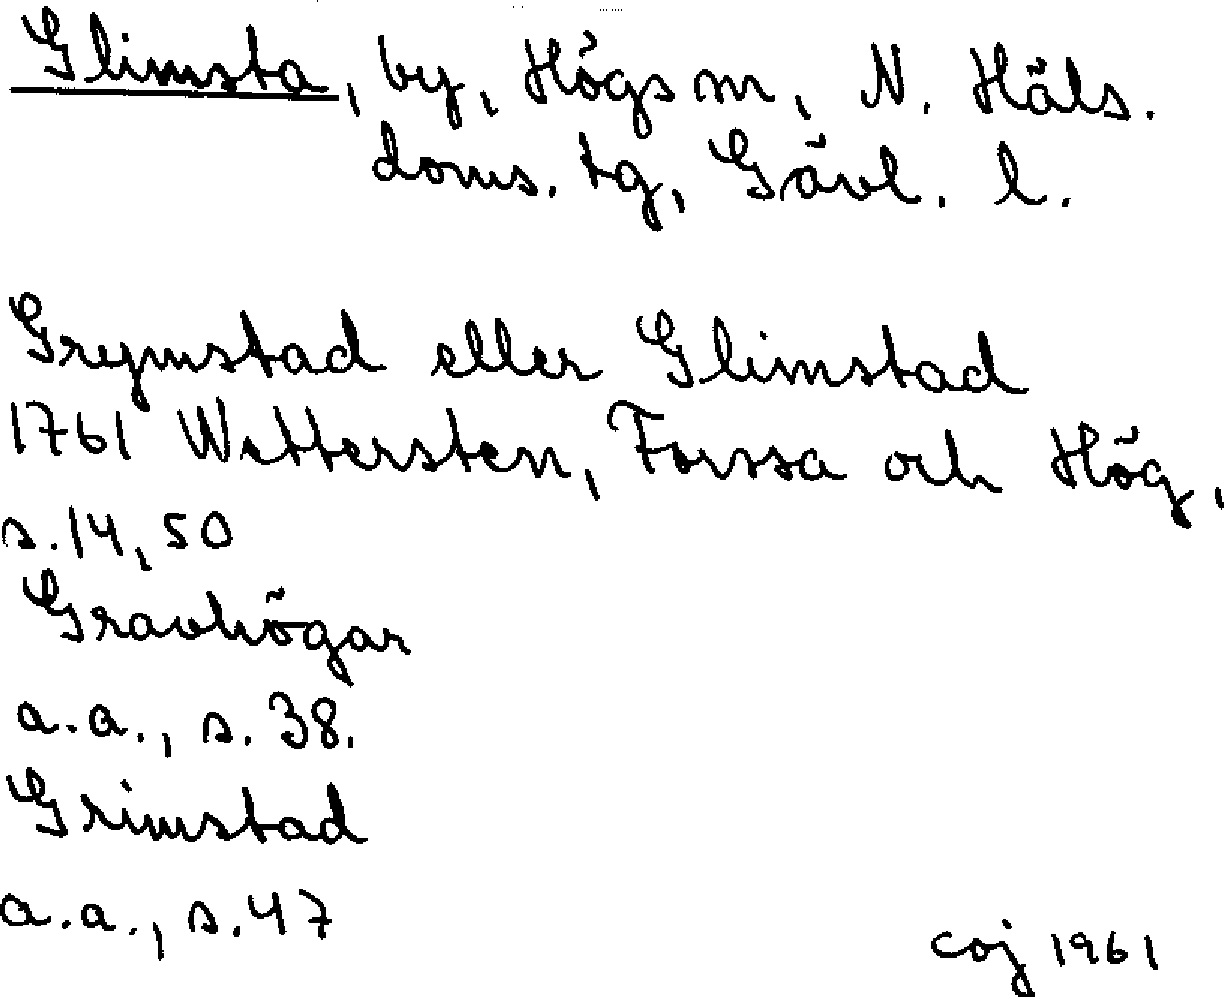 Glimsta, by, Högs sn, N. Häls.
doms. tg, Gävl. l.
Greymstad eller Glimstad
1761 Wettersten, Forssa och Hög,
s. 14, 50
Gravhögar
a.a., s. 38.
Grimstad
a.a., s. 47
coj 1961